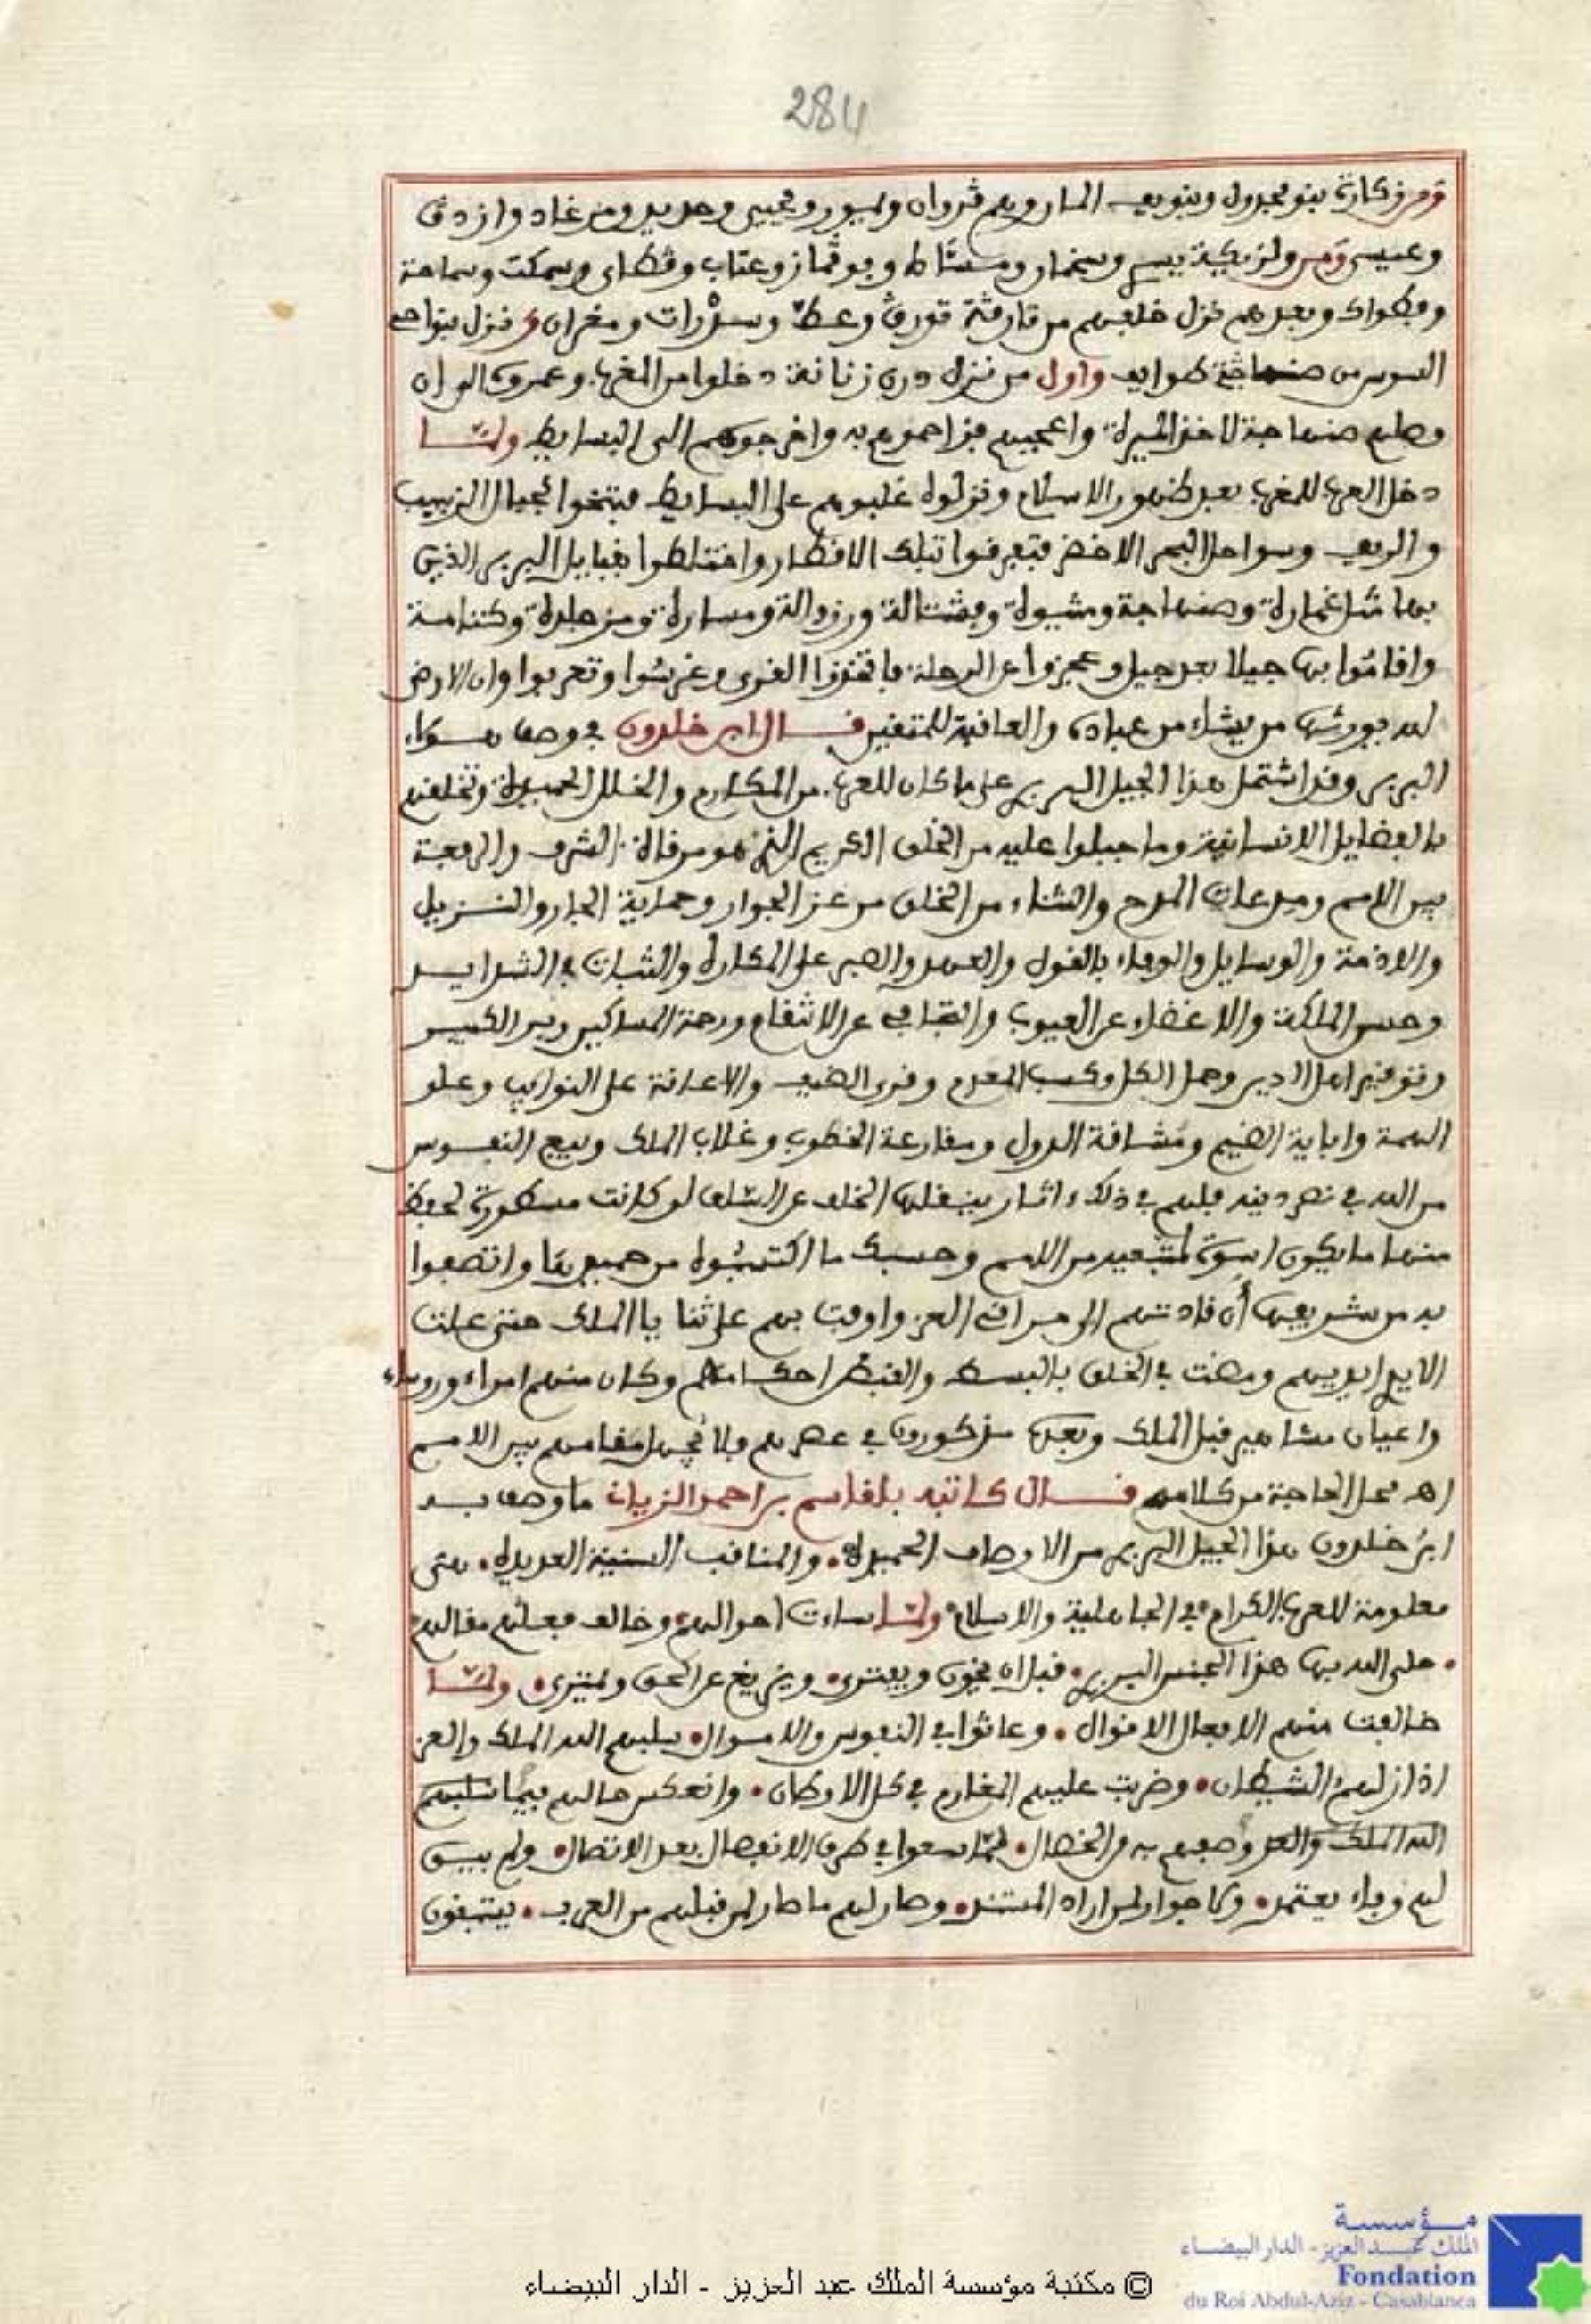 284
ومن زكارة بنو مجدول وبنو يعـ المار ويم ڤروان وليور ويحيى وحديد ومزغاد وازدق
وعيسى ومن ولزيكية ييس وسخمار ومسطاط وبوڤماز وعتاب وڤطاي وسمكت وسماحة
وبطواك وبعدهم نزل خلفهم من قارڤة قورڤ وعطا وسدرات ومغران ونزل بنواحـ
السوس من صنهاجة طوايف واول من نزله درن زناتة دخلوا من المغرب وعمروه الى ان
وصلهم صنهاجة لاخذ الميرة واعجبهم فزاحموهم به واخرجوهم الى البسايط ولما
دخل العرب للمغرب بعد ظهور الاسلام ونزلوه غلبوهم على البسايط فبتخوا لجبال الزبيب
والريف وسواحل البحر الاخضر فتفرفوا تبلك الاقطار واختلطوا بقبايل البربر الذين
بها مثل غمارة وصنهاجة ومثيوة وبشتالة ورزوالة ومسارة ومزجلدة وكتامة
واقاموا بها جيلا بعد جيل وعجزوا عن الرحلة فاتخذوا القرى وغرسوا وتحربوا وان الارض
لله يورثها من يشاء من عباده والعافية للمتقين قال ابن خلدون في وصف هـؤلاء
البربر وقد اشتمل هذا الجيل البربري على ما كان للعرب من المكارم والخلال الحميدة وتخلقهم
بالفضايل الانسانية وما جبلوا عليه من الخلق الكريم الذي هو مرقاة الشرف والرفعة
بين الامم ومدعاة المدح والثناء من الخلق من عز الجوار وحماية الجار والنـزيل
والاذمة والوسايل والوفاء بالقول والعهد والصبر على المكاره والثبات في الشدايـد
وحسن الملكة والاغضاء عن العيوب والتجافي عن الانتقام ورحمة المساكين وبر الكبيـر
وتوقير اهل الدين وحمل الكل وكسب المعدم وقرى الضيف والاعانة على النوايب وعلو
الهمة واباية الضيم ومشاقة الدول ومقارعة الخطوب وغلاب الملك وبيع النفـوس
من الله في نصر دينه فلهم في ذلك ءاثار ينقلها الخلف عن السلف لو كانت مسطورة لحفظ
منها ما يكون اسوة لمتبعيه من الامم وحسبك ما اكتسبوه من حميدها واتصفوا
به من شريفها أن قادتهم الى مراقي العز واوفت بهم على ثنايا الملك حتى علت
الايد ايديهم ومضت في الخلق بالبسط والقبض احكامهم وكان منهم امراء ورؤساء
واعيان مشاهير قبل الملك وبعده مذكورون في عصرهم ولا تجهل مقامهم بين الامم
اهـ محل الحاجة من كلامه قـال كاتبه بلقاسم بن احمد الزياني ما وصف بـه
ابن خلدون هذا الجيل البربري من الاوصاف الحميدة، والمناقب السنية العديدة، هي
معلومة للعرب الكرام في الجاهلية والاسلام ولما ساءت احوالهم وخالف فعلهم مقالهم
حلى الله بها هذا الجنس البربري، قبل ان يخون ويفتري، ويزيغ عن الحق ويمتري، ولمـا
خالفت منهم الافعال الاقوال، وعاثوا في النفوس والاموال، سلبهم الله الملك والعز
اذ ازلهم الشيطان، وضربت عليهم المغارم في كل الاوطان، وانعكس حالهم فيما سلبهم
الله الملك والعز وصفهم به من الخصال، لما سعوا في طرق الانفصال بعد الاتصال، ولم يبـق
لهم وفاء يعتمد، ولا جوار لمن اراد المستند، وصار لهم ما صار لمن قبلهم من العرب، يبتغون
مؤسسة
الملك عبد العزيز - الدار البيضاء
Fondation
du Roi Abdul-Aziz - Casablanca
© مكتبة مؤسسة الملك عبد العزيز - الدار البيضاء